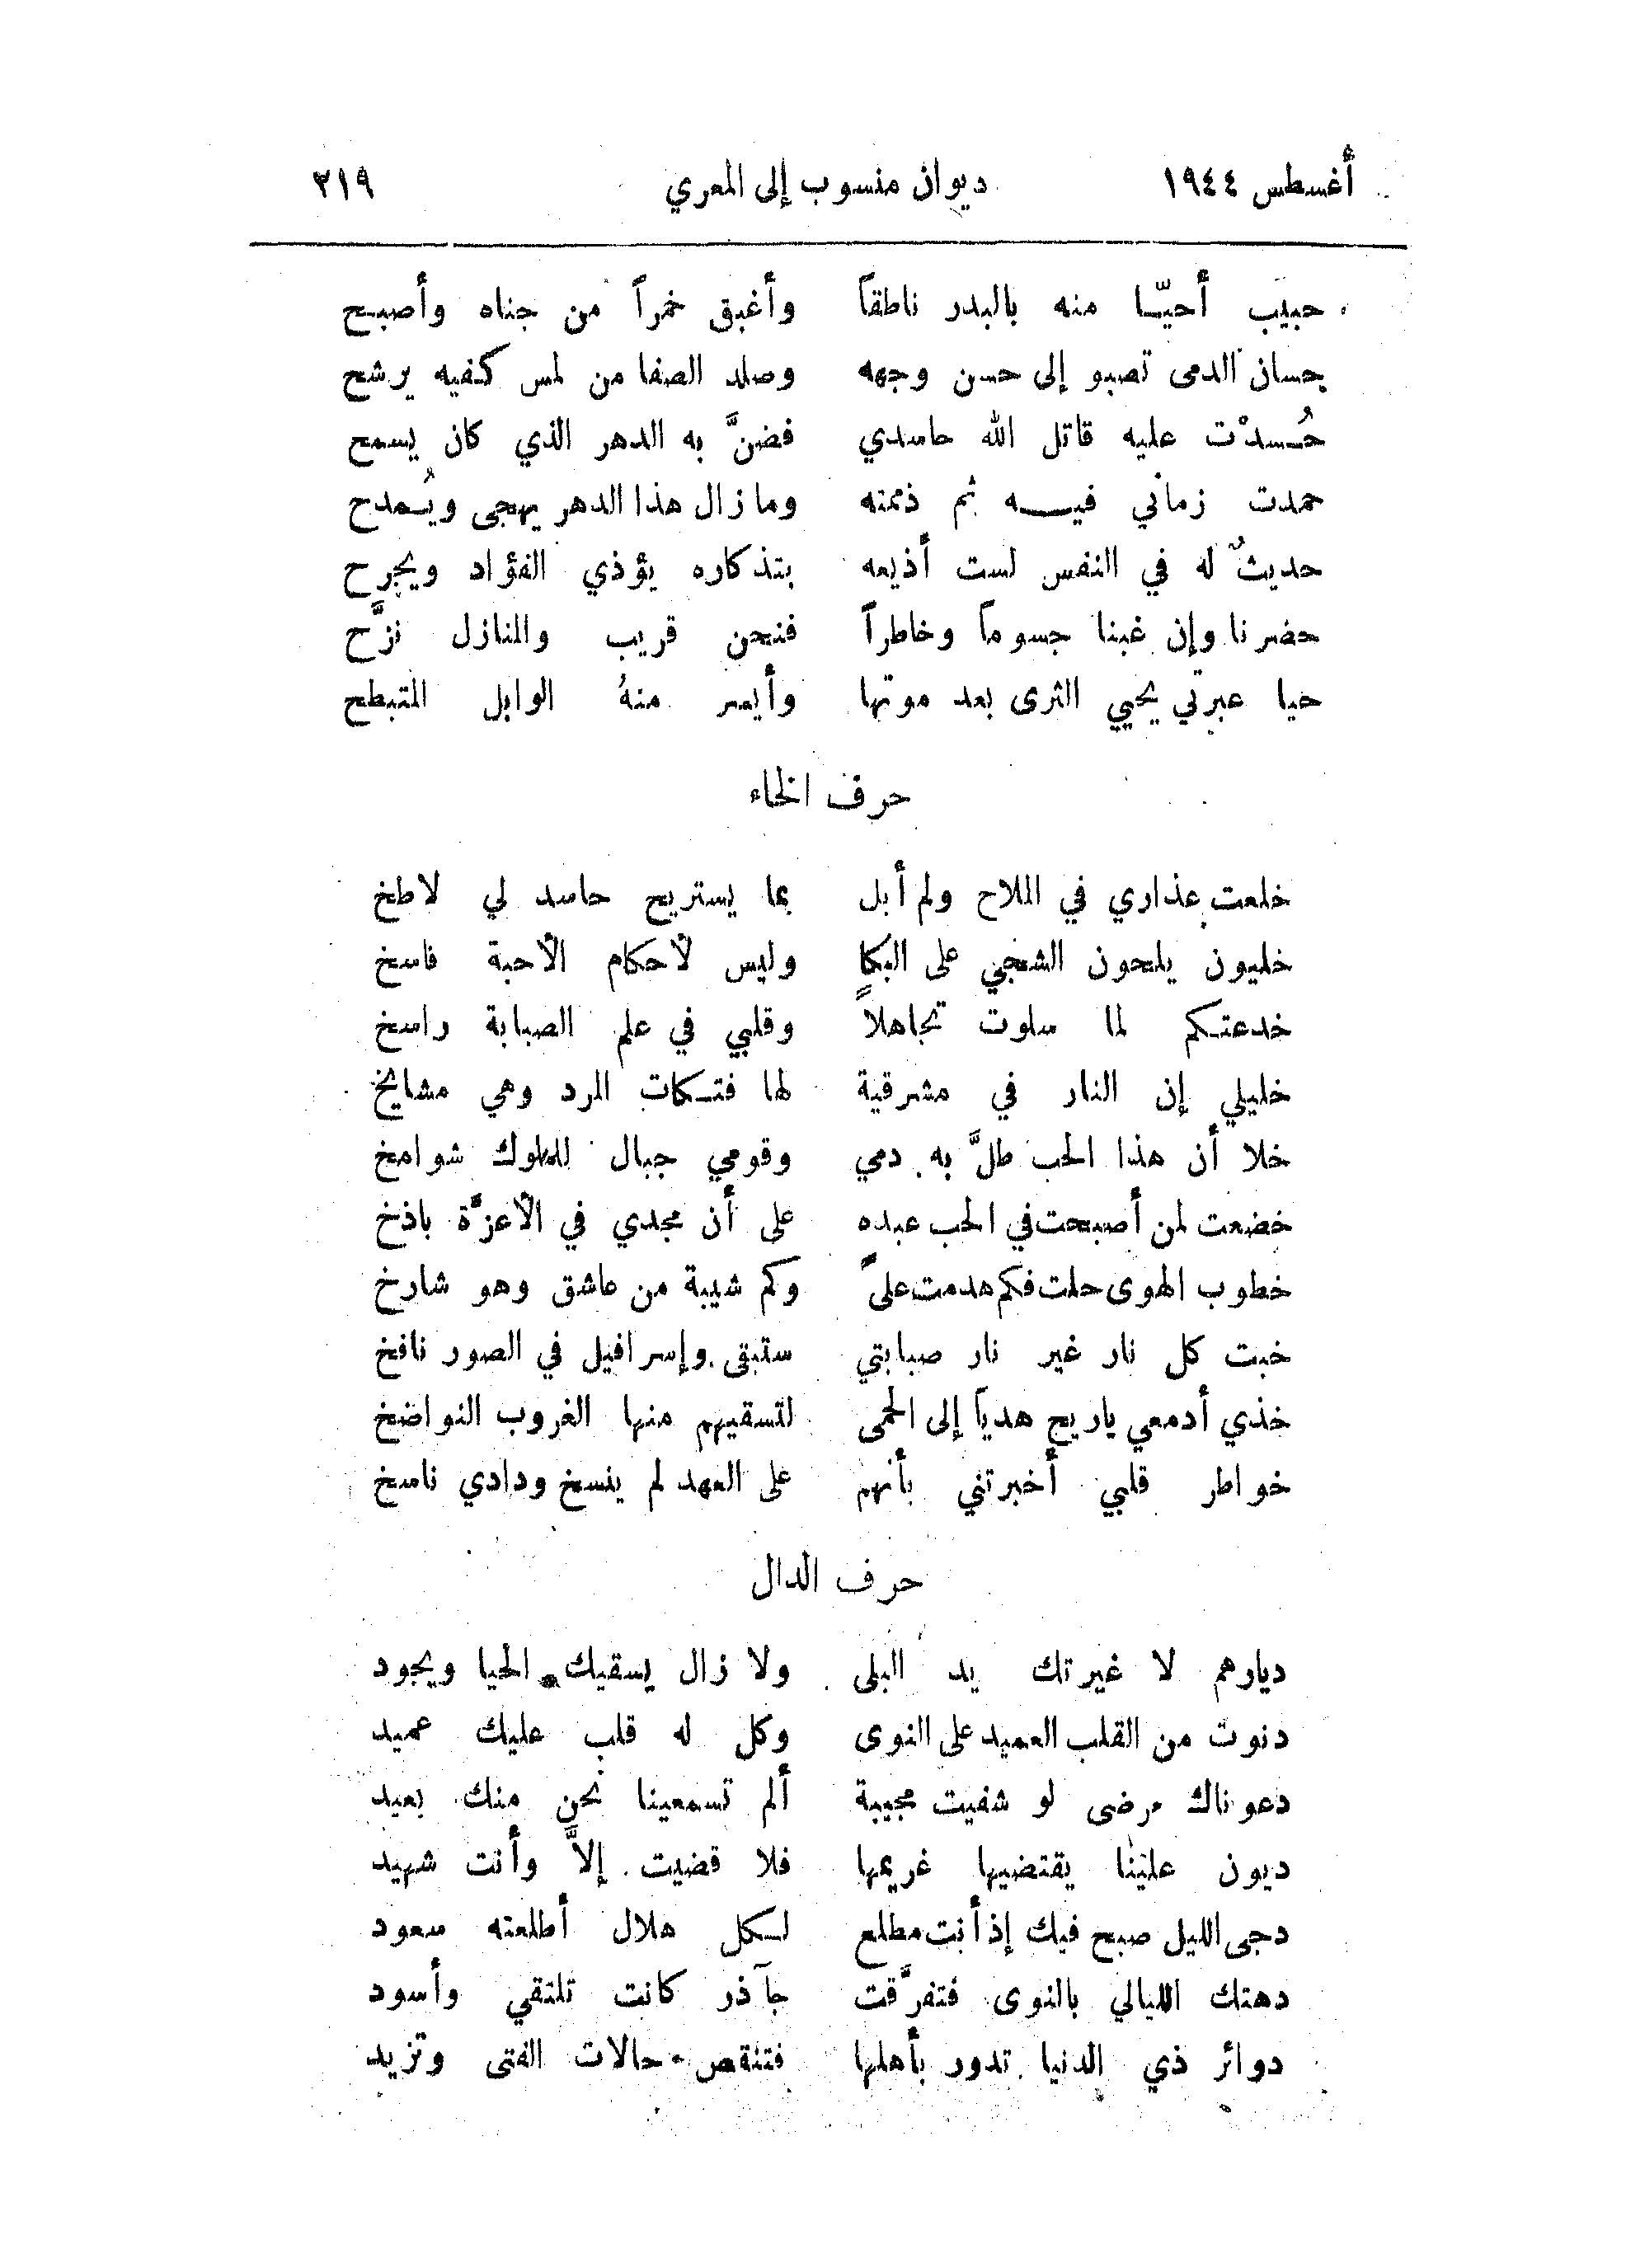 أغسطس ١٩٤٤ ديوان منسوب إلى المعري ٢١٩
حبيب أحيّا منه بالبدر ناطقاً وأغبق خمراً من جناه وأصبح
حسان الدمى تصبو إلى حسن وجهه وصلد الصفا من لمس كفيه يرشح
حُسدْت عليه قاتل الله حاسدي فضنَّ به الدهر الذي كان يسمح
حمدت زماني فيه ثم ذممته وما زال هذا الدهر يهجى ويُمدح
حديثٌ له في النفس لست أذيعه بتذكاره يؤذي الفؤاد ويجرح
حضرنا وإن غبنا جسوماً وخاطراً فنحن قريب والمنازل نزَّح
حيا عبرتي يحيي الثرى بعد موتها وأيسر منهُ الوابل المتبطح
حرف الخاء
خلعت عذاري في الملاح ولم أبل بما يستريح حاسد لي لاطخ
خليون يلحون الشجي على البكا وليس لأحكام الأحبة فاسخ
خدعتكم لما سلوت تجاهلاً وقلبي في علم الصبابة راسخ
خليلي إن النار في مشرقية لها فتكات المرد وهي مشايخ
خلا أن هذا الحب طلَّ به دمي وقومي جبال للملوك شوامخ
خضعت لمن أصبحت في الحب عبده على أن مجدي في الأعزَّة باذخ
خطوب الهوى حلت فكم هدمت علىً وكم شيبة من عاشق وهو شارخ
خبت كل نار غير نار صبابتي ستبقى وإسرافيل في الصور نافخ
خذي أدمعي ياريح هدياً إلى الحمى لتسقيهم منها الغروب النواضخ
خواطر قلبي أخبرتني بأنهم على العهد لم ينسخ ودادي ناسخ
حرف الدال
ديارهم لا غيرتك يد البلى ولا زال يسقيك الحيا ويجود
دنوت من القلب العميد على النوى وكل له قلب عليك عميد
دعوناك مرضى لو شفيت مجيبة ألم تسمعينا نحن منك بعيد
ديون علينا يقتضيها غريمها فلا قضيت إلاَّ وأنت شهيد
دجى الليل صبح فيك إذ أنت مطلع لكل هلال أطلعته سعود
دهتك الليالي بالنوى فتفرَّقت جآذر كانت تلتقي وأسود
دوائر ذي الدنيا تدور بأهلها فتنقص حالات الفتى وتزيد